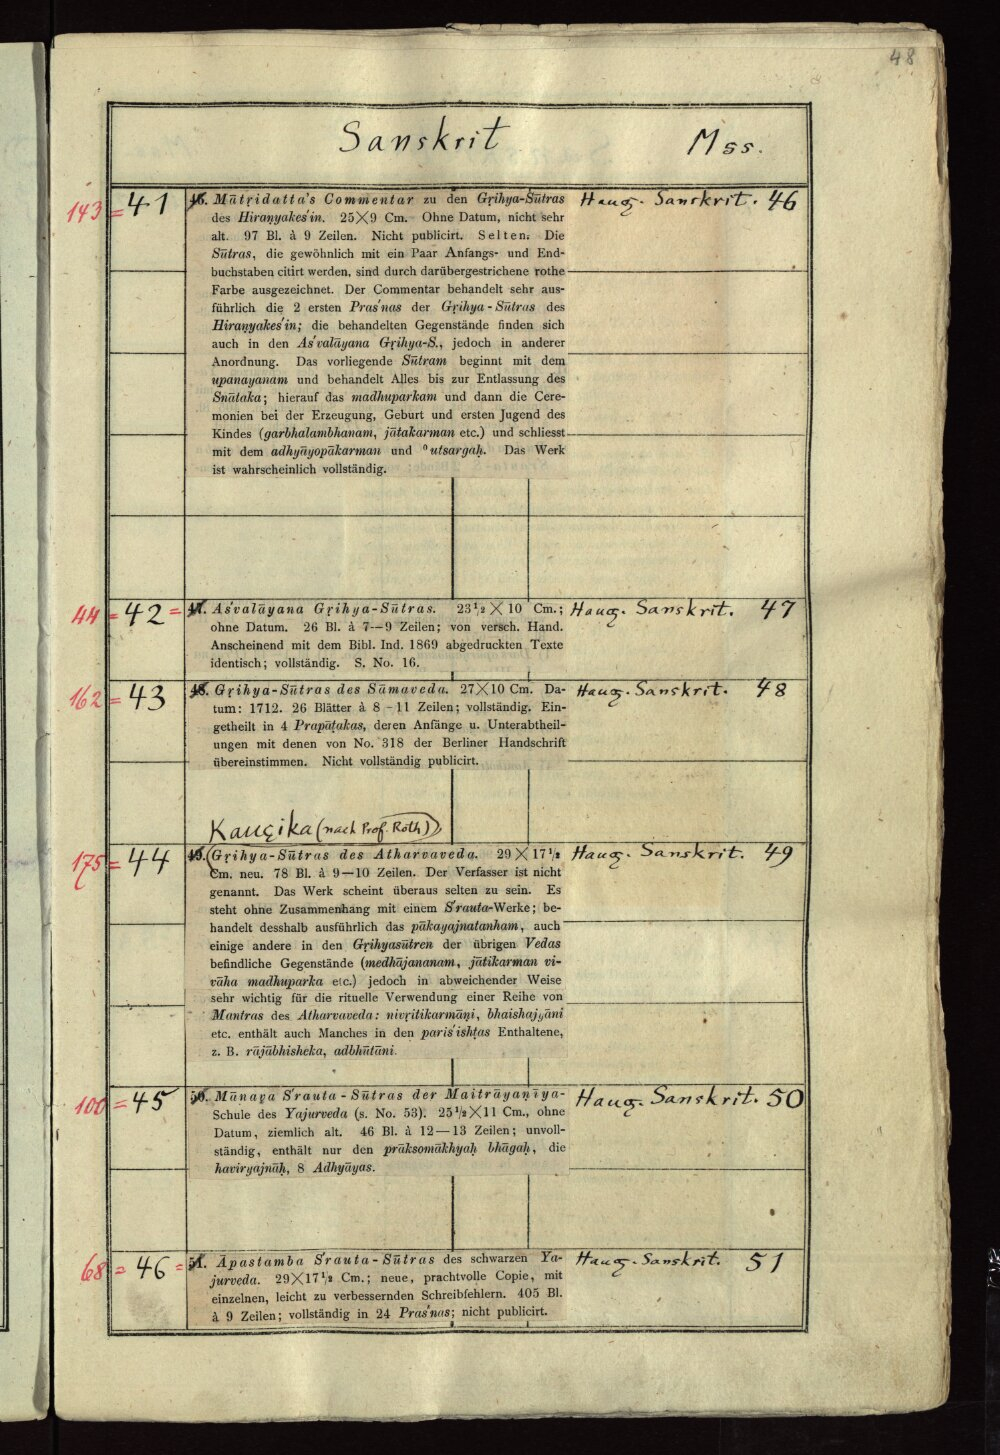 48
Sanskrit Mss.
143 = 41 46. Mātṛidatta's Commentar zu den Gṛihya-Sūtras Haug. Sanskrit. 46
des Hiraṇyakes'in. 25×9 Cm. Ohne Datum, nicht sehr
alt. 97 Bl. à 9 Zeilen. Nicht publicirt. Selten. Die
Sūtras, die gewöhnlich mit ein Paar Anfangs- und End-
buchstaben citirt werden, sind durch darübergestrichene rothe
Farbe ausgezeichnet. Der Commentar behandelt sehr aus-
führlich die 2 ersten Pras'nas der Gṛihya-Sūtras des
Hiraṇyakes'in; die behandelten Gegenstände finden sich
auch in den As'valāyana Gṛihya-S., jedoch in anderer
Anordnung. Das vorliegende Sūtram beginnt mit dem
upanayanam und behandelt Alles bis zur Entlassung des
Snātaka; hierauf das madhuparkam und dann die Cere-
monien bei der Erzeugung, Geburt und ersten Jugend des
Kindes (garbhalambhanam, jātakarman etc.) und schliesst
mit dem adhyāyopākarman und °utsargaḥ. Das Werk
ist wahrscheinlich vollständig.
44 = 42 = 47. As'valāyana Gṛihya-Sūtras. 23½×10 Cm.; Haug. Sanskrit. 47
ohne Datum. 26 Bl. à 7—9 Zeilen; von versch. Hand.
Anscheinend mit dem Bibl. Ind. 1869 abgedruckten Texte
identisch; vollständig. S. No. 16.
162 = 43 48. Gṛihya-Sūtras des Sāmaveda. 27×10 Cm. Da- Haug. Sanskrit. 48
tum: 1712. 26 Blätter à 8-11 Zeilen; vollständig. Ein-
getheilt in 4 Prapāṭakas, deren Anfänge u. Unterabtheil-
ungen mit denen von No. 318 der Berliner Handschrift
übereinstimmen. Nicht vollständig publicirt.
Kauçika (nach Prof. Roth)
175 = 44 49. (Gṛihya-Sūtras des Atharvaveda. 29×17½ Haug. Sanskrit. 49
Cm. neu. 78 Bl. à 9—10 Zeilen. Der Verfasser ist nicht
genannt. Das Werk scheint überaus selten zu sein. Es
steht ohne Zusammenhang mit einem S'rauta-Werke; be-
handelt desshalb ausführlich das pākayajnatanham, auch
einige andere in den Gṛihyasūtren der übrigen Vedas
befindliche Gegenstände (medhājananam, jātikarman vi-
vāha madhuparka etc.) jedoch in abweichender Weise
sehr wichtig für die rituelle Verwendung einer Reihe von
Mantras des Atharvaveda: nivṛitikarmāṇi, bhaishajyāni
etc. enthält auch Manches in den paris'ishṭas Enthaltene,
z. B. rājābhisheka, adbhūtāni.
100 = 45 50. Mānava S'rauta-Sūtras der Maitrāyaṇīya- Haug. Sanskrit. 50
Schule des Yajurveda (s. No. 53). 25½×11 Cm., ohne
Datum, ziemlich alt. 46 Bl. à 12—13 Zeilen; unvoll-
ständig, enthält nur den prāksomākhyaḥ bhāgaḥ, die
haviryajnāḥ, 8 Adhyāyas.
68 = 46 = 51. Āpastamba S'rauta-Sūtras des schwarzen Ya- Haug. Sanskrit. 51
jurveda. 29×17½ Cm.; neue, prachtvolle Copie, mit
einzelnen, leicht zu verbessernden Schreibfehlern. 405 Bl.
à 9 Zeilen; vollständig in 24 Pras'nas; nicht publicirt.